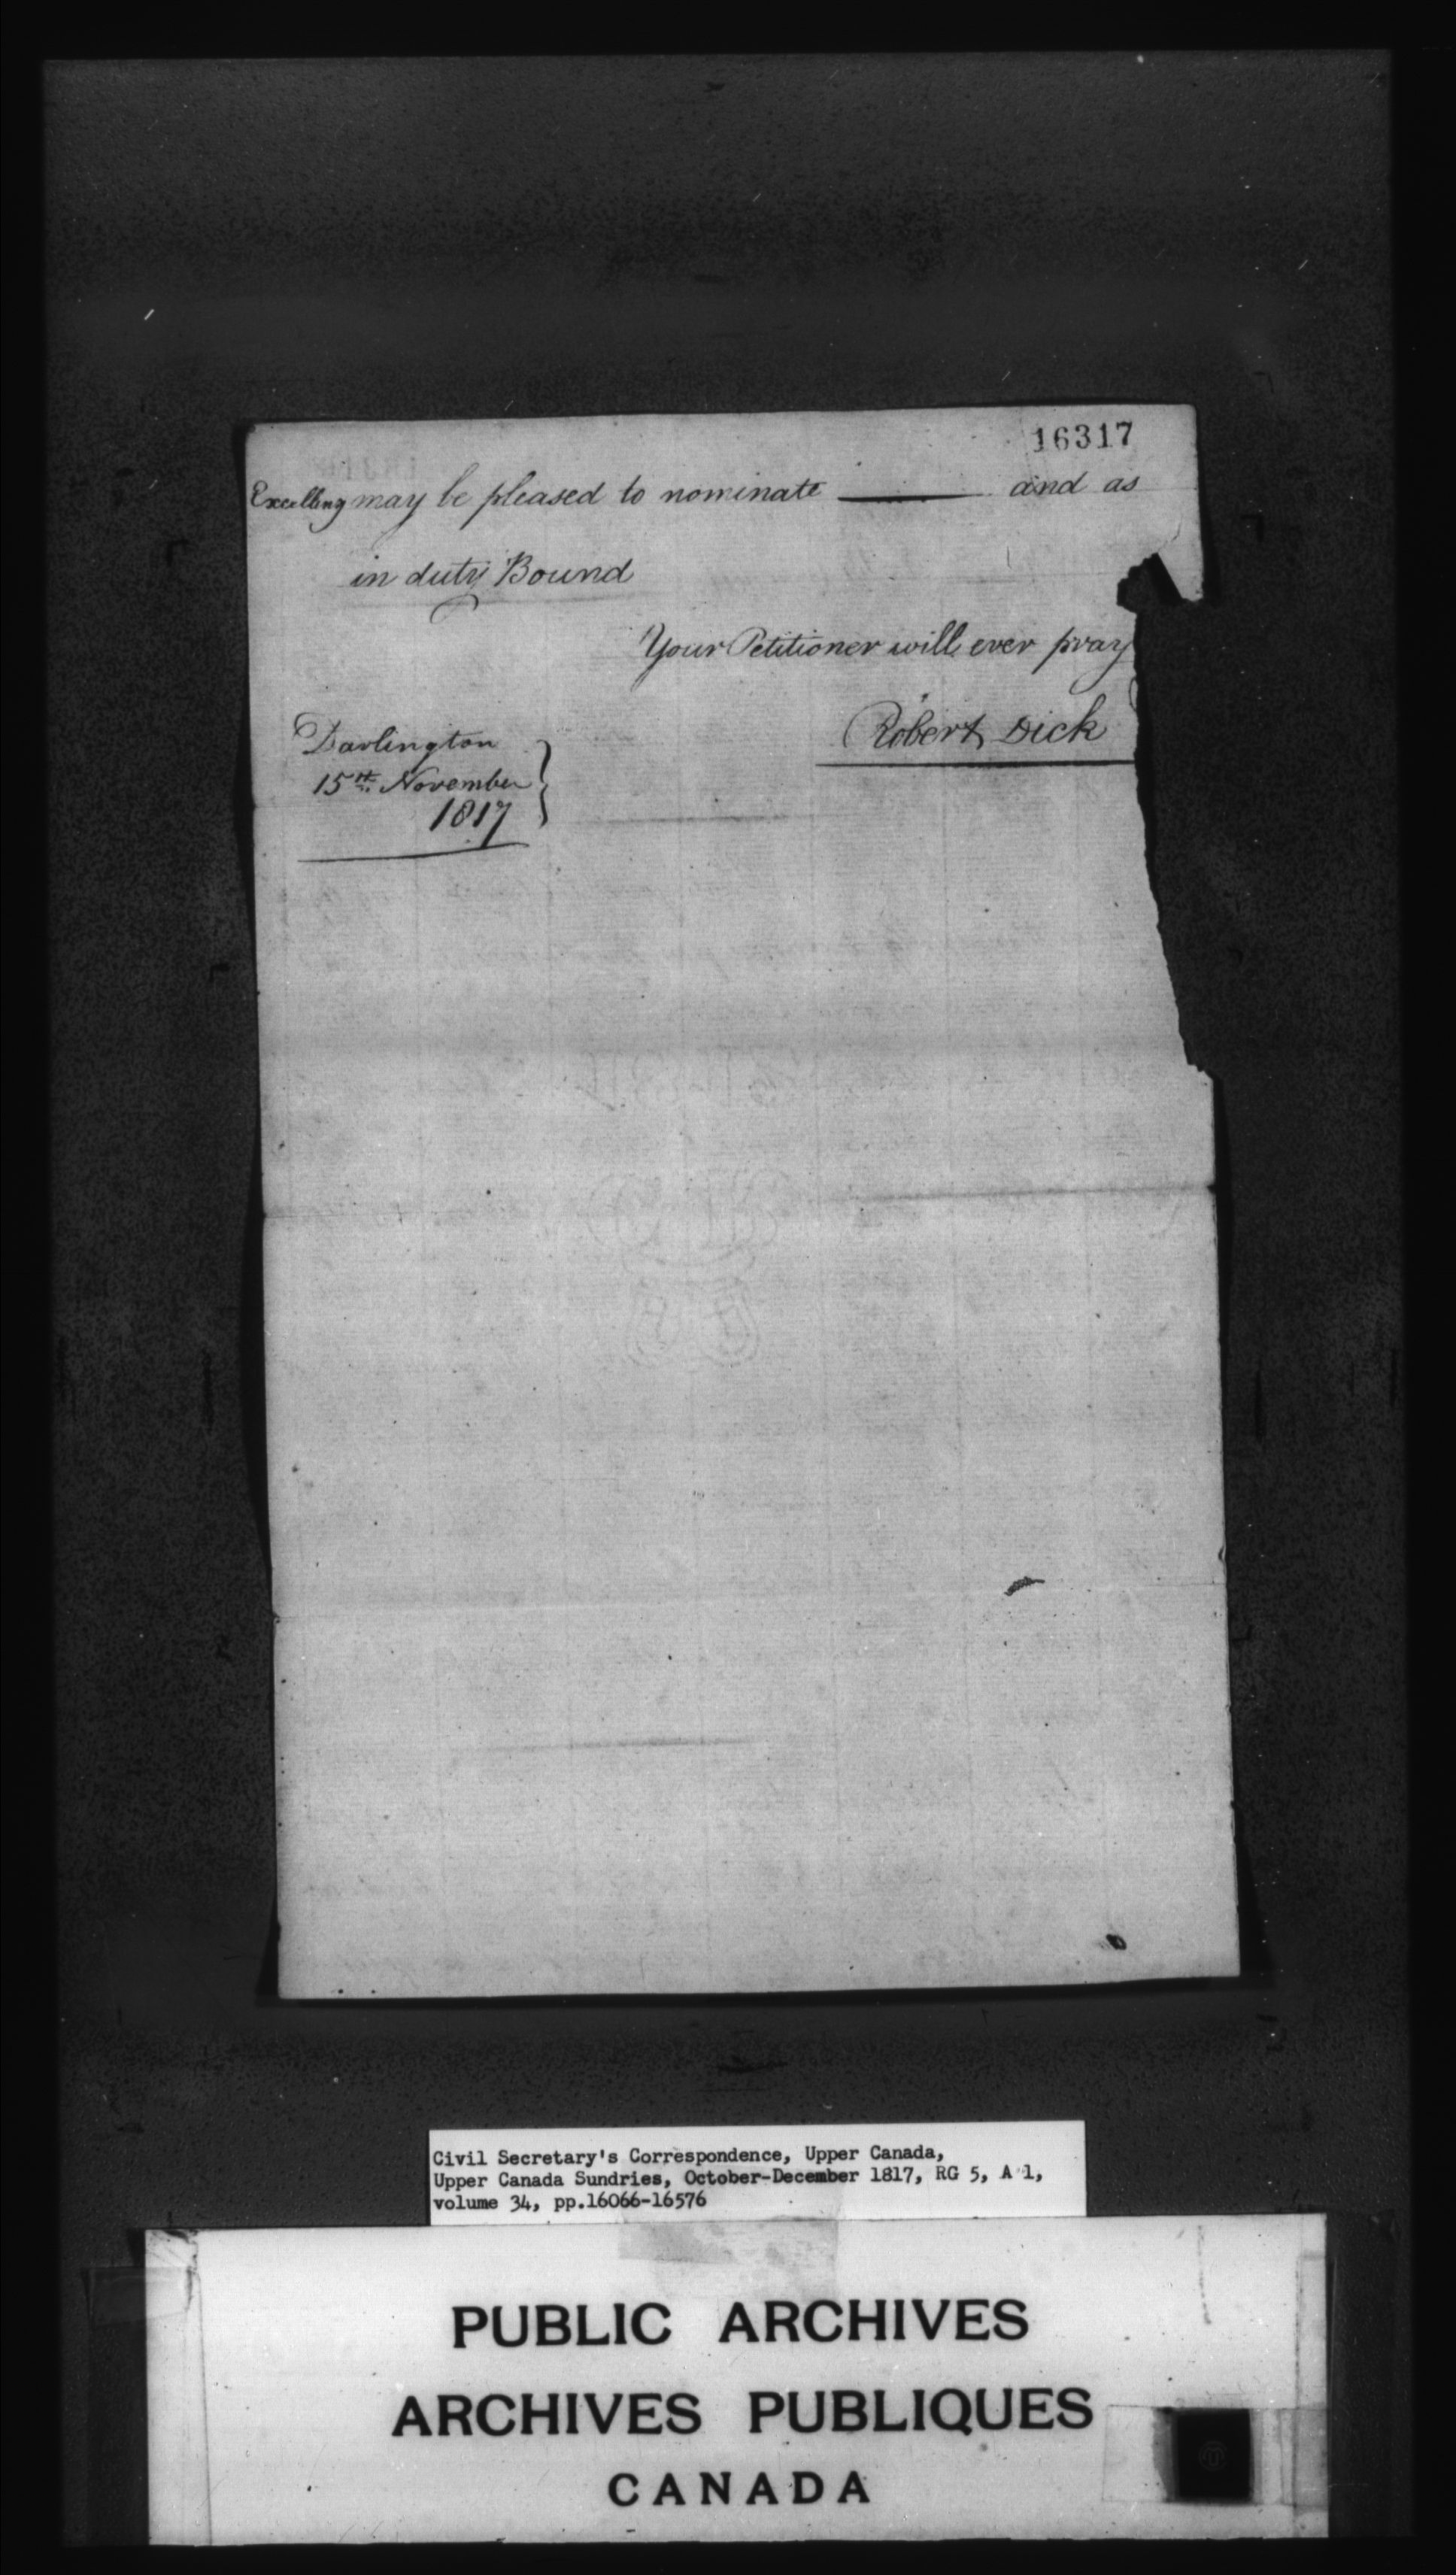 16317
Excellency may be pleased to nominate ——— and as
in duty Bound
Your Petitioner will ever pray
Robert Dick
Darlington
15th November
1817
Civil Secretary's Correspondence, Upper Canada,
Upper Canada Sundries, October-December 1817, RG 5, A 1,
volume 34, pp.16066-16576
PUBLIC ARCHIVES
ARCHIVES PUBLIQUES
CANADA